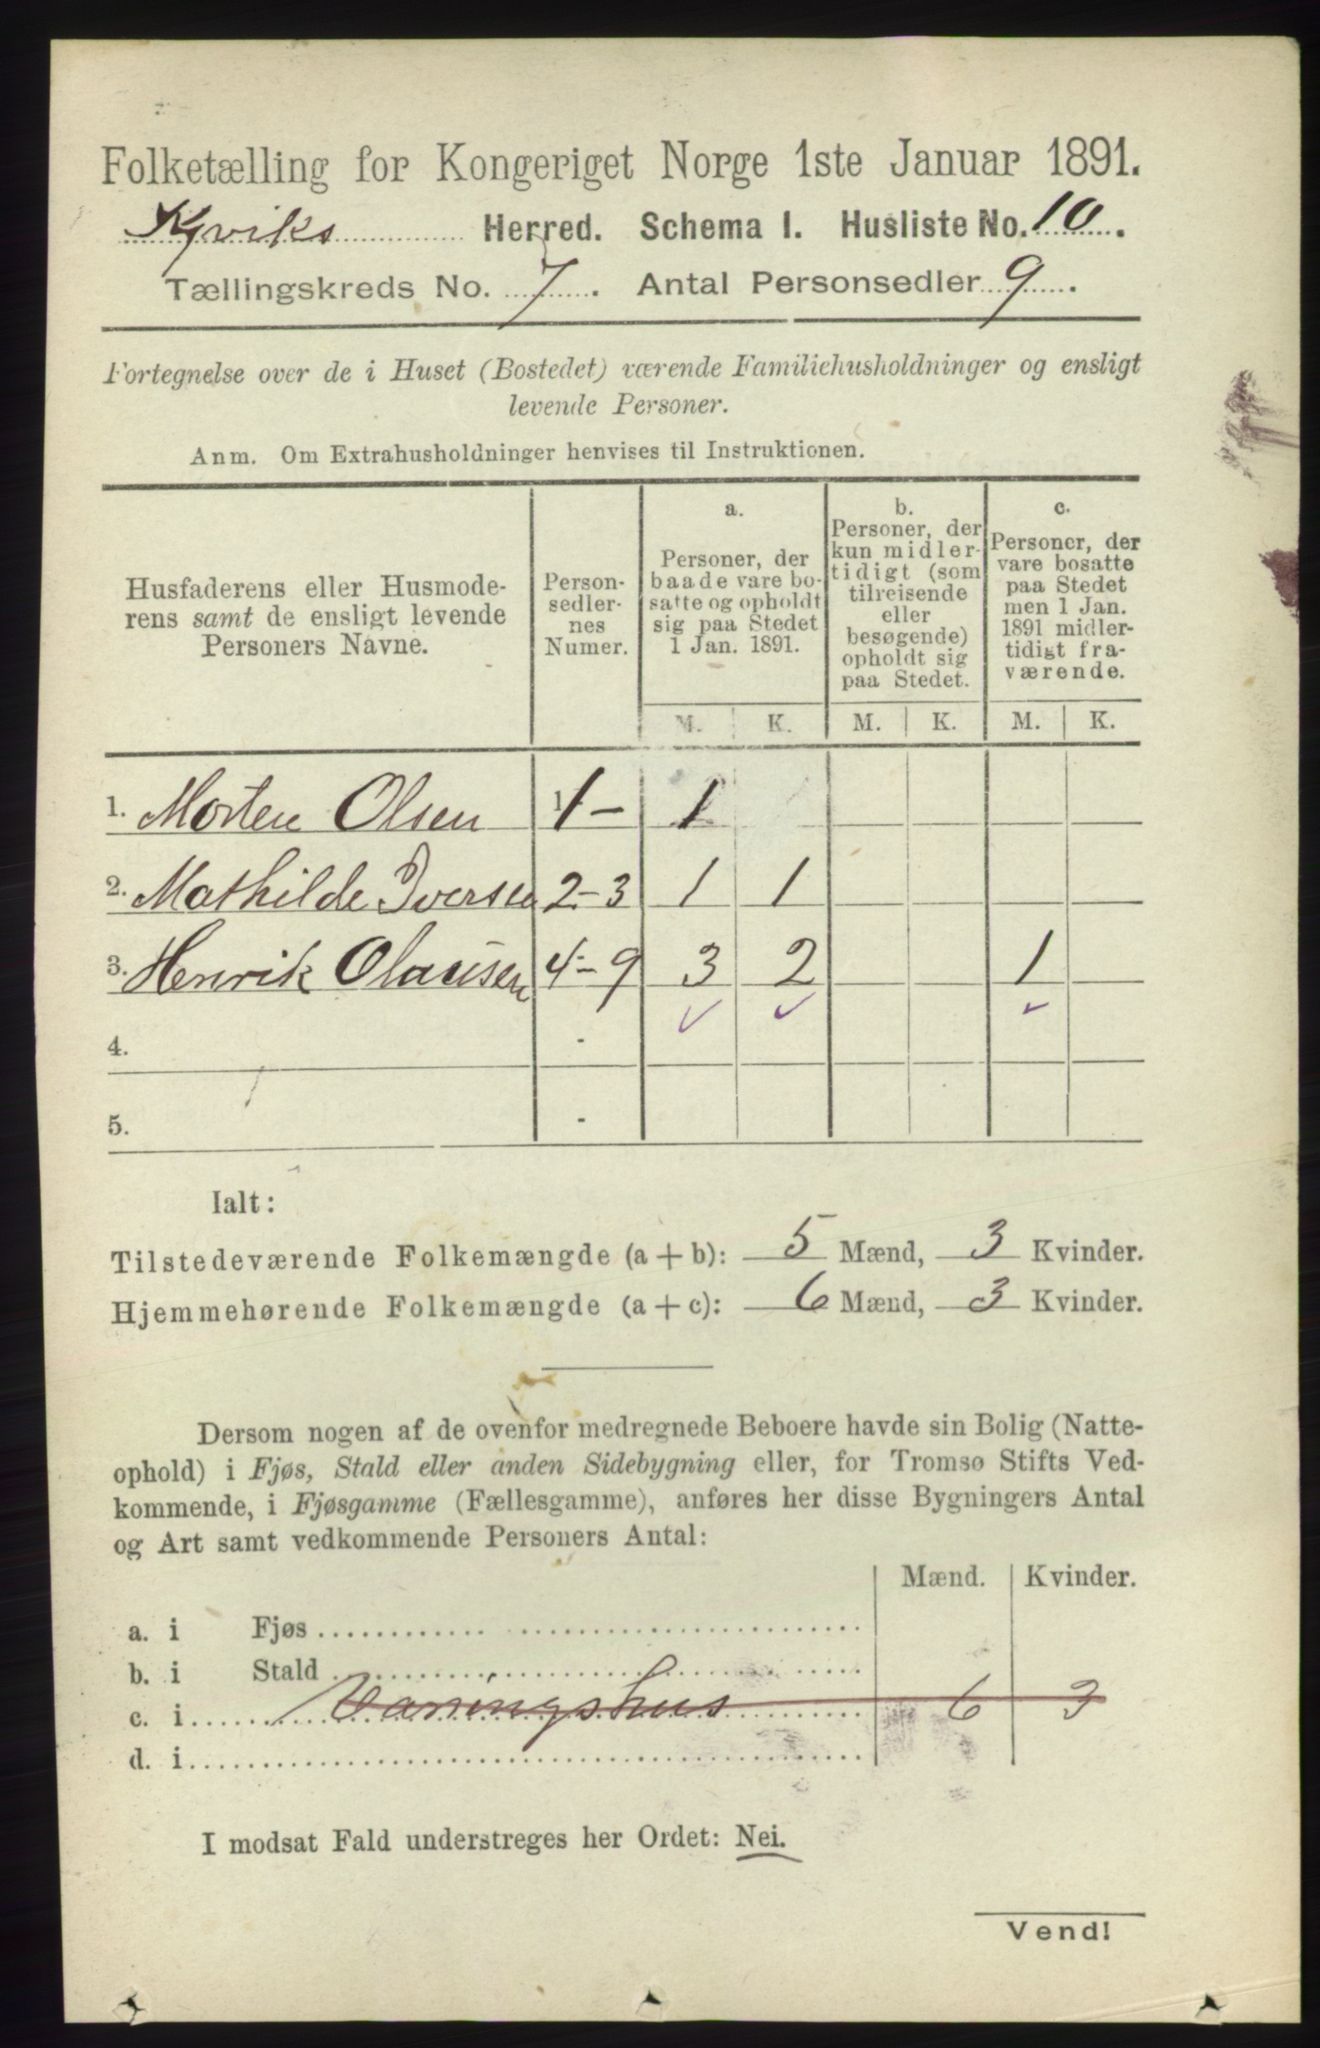 Folketælling for Kongeriget Norge 1ste Januar 1891.
Kqviks Herred. Schema I. Husliste No. 10.
Tællingskreds No. 7. Antal Personsedler 9.
Fortegnelse over de i Huset (Bostedet) værende Familiehusholdninger og ensligt
levende Personer.
Anm. Om Extrahusholdninger henvises til Instruktionen.
Husfaderens eller Husmode-
rens samt de ensligt levende
Personers Navne.
Person-
sedler-
nes
Numer.
a.
Personer, der
baade vare bo-
satte og opholdt
sig paa Stedet
1 Jan. 1891.
b.
Personer, der
kun midler-
tidigt (som
tilreisende
eller
besøgende)
opholdt sig
paa Stedet.
c.
Personer, der
vare bosatte
paa Stedet
men 1 Jan.
1891 midler-
tidigt fra-
værende.
M. K. M. K. M. K.
1. Morten Olsen 1 - 1
2. Mathilde Iversen 2 - 3 1 1
3. Henrik Olausen 4 - 9 3 2 1
4. -
5. -
Ialt:
Tilstedeværende Folkemængde (a + b): 5 Mænd, 3 Kvinder.
Hjemmehørende Folkemængde (a + c): 6 Mænd, 3 Kvinder.
Dersom nogen af de ovenfor medregnede Beboere havde sin Bolig (Natte-
ophold) i Fjøs, Stald eller anden Sidebygning eller, for Tromsø Stifts Ved-
kommende, i Fjøsgamme (Fællesgamme), anføres her disse Bygningers Antal
og Art samt vedkommende Personers Antal:
Mænd. Kvinder.
a. i Fjøs
b. i Stald
c. i Vaaningshus 6 3
d. i
I modsat Fald understreges her Ordet: Nei.
Vend!